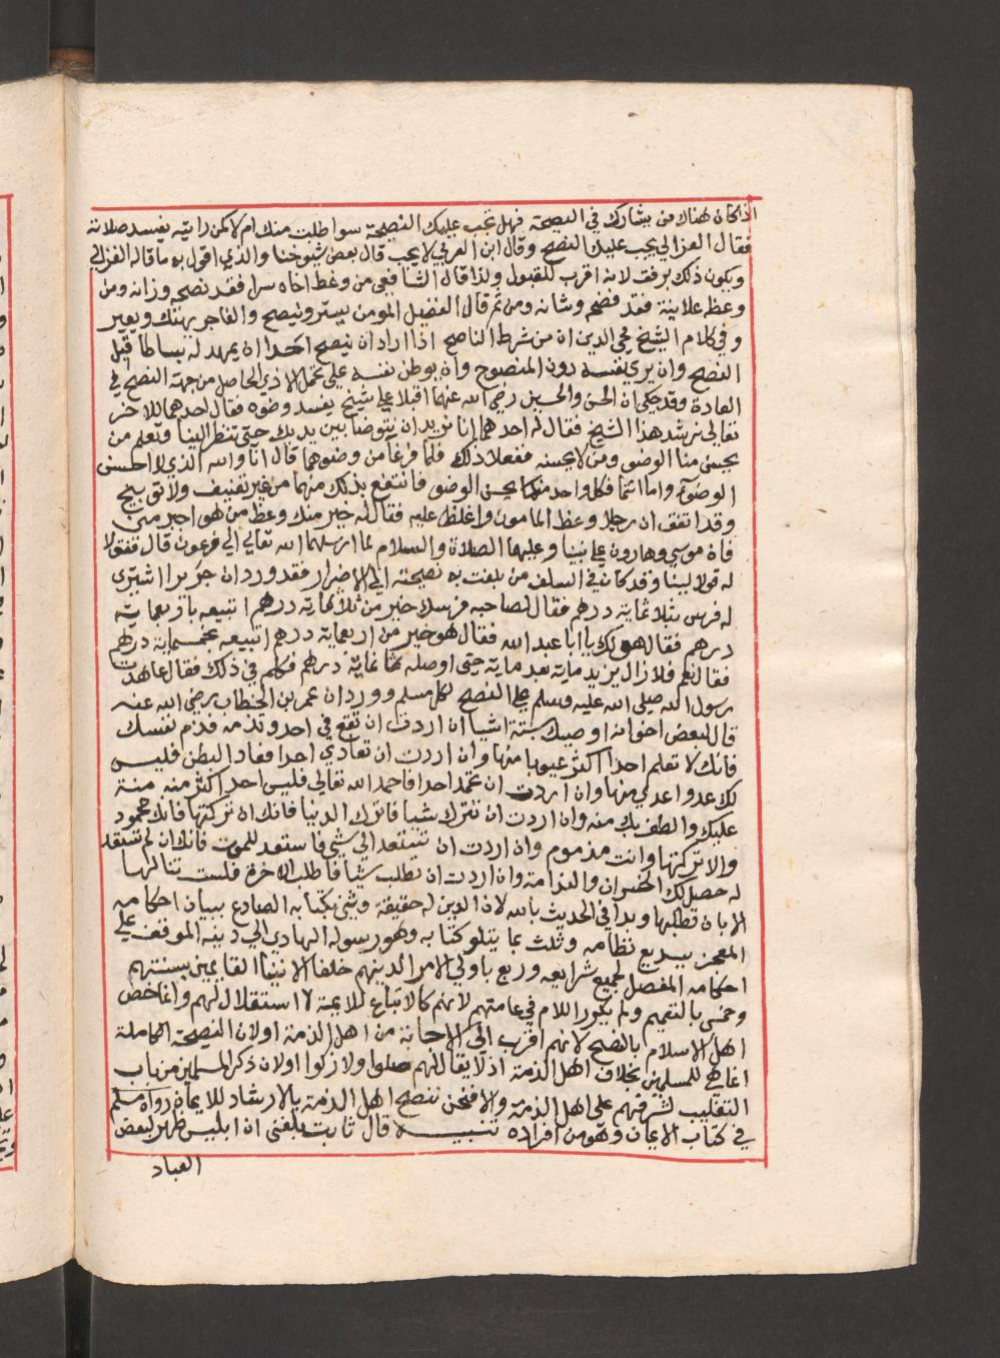 اذا كان هناك من يشارك في النصيحة فهل تجب عليك النصيحة سوا طلبت منك ام لا كمن رايته يفسد صلاته
فقال الغزالي يجب عليك النصح وقال ابن العربي لا يجب قال بعض شيوخنا والذي اقول به ما قاله الغزالي
ويكون ذلك برفق لانه اقرب للقبول ولذا قال الشافعي من وعظ اخاه سرا فقد نصحه وزانه ومن
وعظه علانية فقد فضحه وشانه ومن ثم قال الفضيل المومن يستر وينصح والفاجر يهتك ويعير
وفي كلام الشيخ محي الدين ان من شرط الناصح اذا اراد ان ينصح احدا ان يمهد له بساطا قبل
النصح وان يري نفسه دون المنصوح وان يوطن نفسه علي تحمل الاذي الحاصل من جهة النصح في
العادة وقد حكي ان الحسن والحسين رضي الله عنهما اقبلا علي شيخ يفسد وضوه فقال احدهما للاخر
تعالي نرشد هذا الشيخ فقال له احدهما انا نريد ان نتوضا بين يديك حتي تنظر الينا وتعلم من
يحسن منا الوضو ومن لا يحسنه ففعلا ذلك فلما فرغا من وضوهما قال انا والله الذي لا احسن
الوضو واما انتما فكل واحد منكما يحسن الوضو فانتفع بذلك منهما من غير تعنيف ولا توبيخ
وقد اتفق ان رجلا وعظ المامون واغلظ عليه فقال له خير منك وعظ من هو اخبر مني
فان موسي وهارون علي نبينا وعليهما الصلاة والسلام لما ارسلهما الله تعالي الي فرعون قال فقولا
له قولا لينا وقد كان في السلف من بلغت به نصيحته الي الاضرار فقد ورد ان جريرا اشتري
له فرس بثلاثماية درهم فقال لصاحبه فرسك خير من ثلاثماية درهم اتبيعه باربعماية
درهم فقال هو لك يا ابا عبد الله فقال هو خير من اربعماية درهم اتبيعه بخمسماية درهم
فقال نعم فلا زال يزيد ماية بعد ماية حتي اوصله ثمانماية درهم فكلم في ذلك فقال عاهدت
رسول الله صلي الله عليه وسلم علي النصح لكل مسلم وورد ان عمر بن الخطاب رضي الله عنه
قال لبعض اخوانه اوصيك بستة اشيا ان اردت ان تقع في احد وتذمه فذم نفسك
فانك لا تعلم احدا اكثر عيوبا منها وان اردت ان تعادي احدا فعاد البطن فليس
لك عدوا عدي منها وان اردت ان تحمد احدا فاحمد الله تعالي فليس احد اكثر منه منة
عليك والطف بك منه وان اردت ان تترك شيا فاترك الدنيا فانك ان تركتها فانك محمود
والا تركتها وانت مذموم وان اردت ان تستعد الي شي فاستعد للموت فانك ان لم تستعد
له حصل لك الخسران والندامة وان اردت ان تطلب شيا فاطلب الاخرة فلست تنالها
الا بان تطلبها وبدا في الحديث بالله لان الدين له حقيقة وثني بكتابه الصادع ببيان احكامه
المعجز ببديع نظامه وثلث بما يتلو كتابه وهو رسوله الهادي الي دينه الموقف علي
احكامه المفصل لجميع شرايعه وربع باولي الامر الذين هم خلفا الانبيا القايمين بسنتهم
وخمس بالتعميم ولم يكرر اللام في عامتهم لانهم كالاتباع للايمة لا استقلال لهم وانما خص
اهل الاسلام بالنصح لانهم اقرب الي الاجابة من اهل الذمة اولان النصيحة الكاملة
انما هي للمسلمين بخلاف اهل الذمة اذ لا يقال لهم صلوا ولا زكوا اولان ذكر المسلمين من باب
التغليب لشرفهم علي اهل الذمة والا فنحن ننصح اهل الذمة بالارشاد للايمان رواه مسلم
في كتاب الايمان وهو من افراده تنبيه قال ثابت بلغني ان ابليس ظهر لبعض
العباد